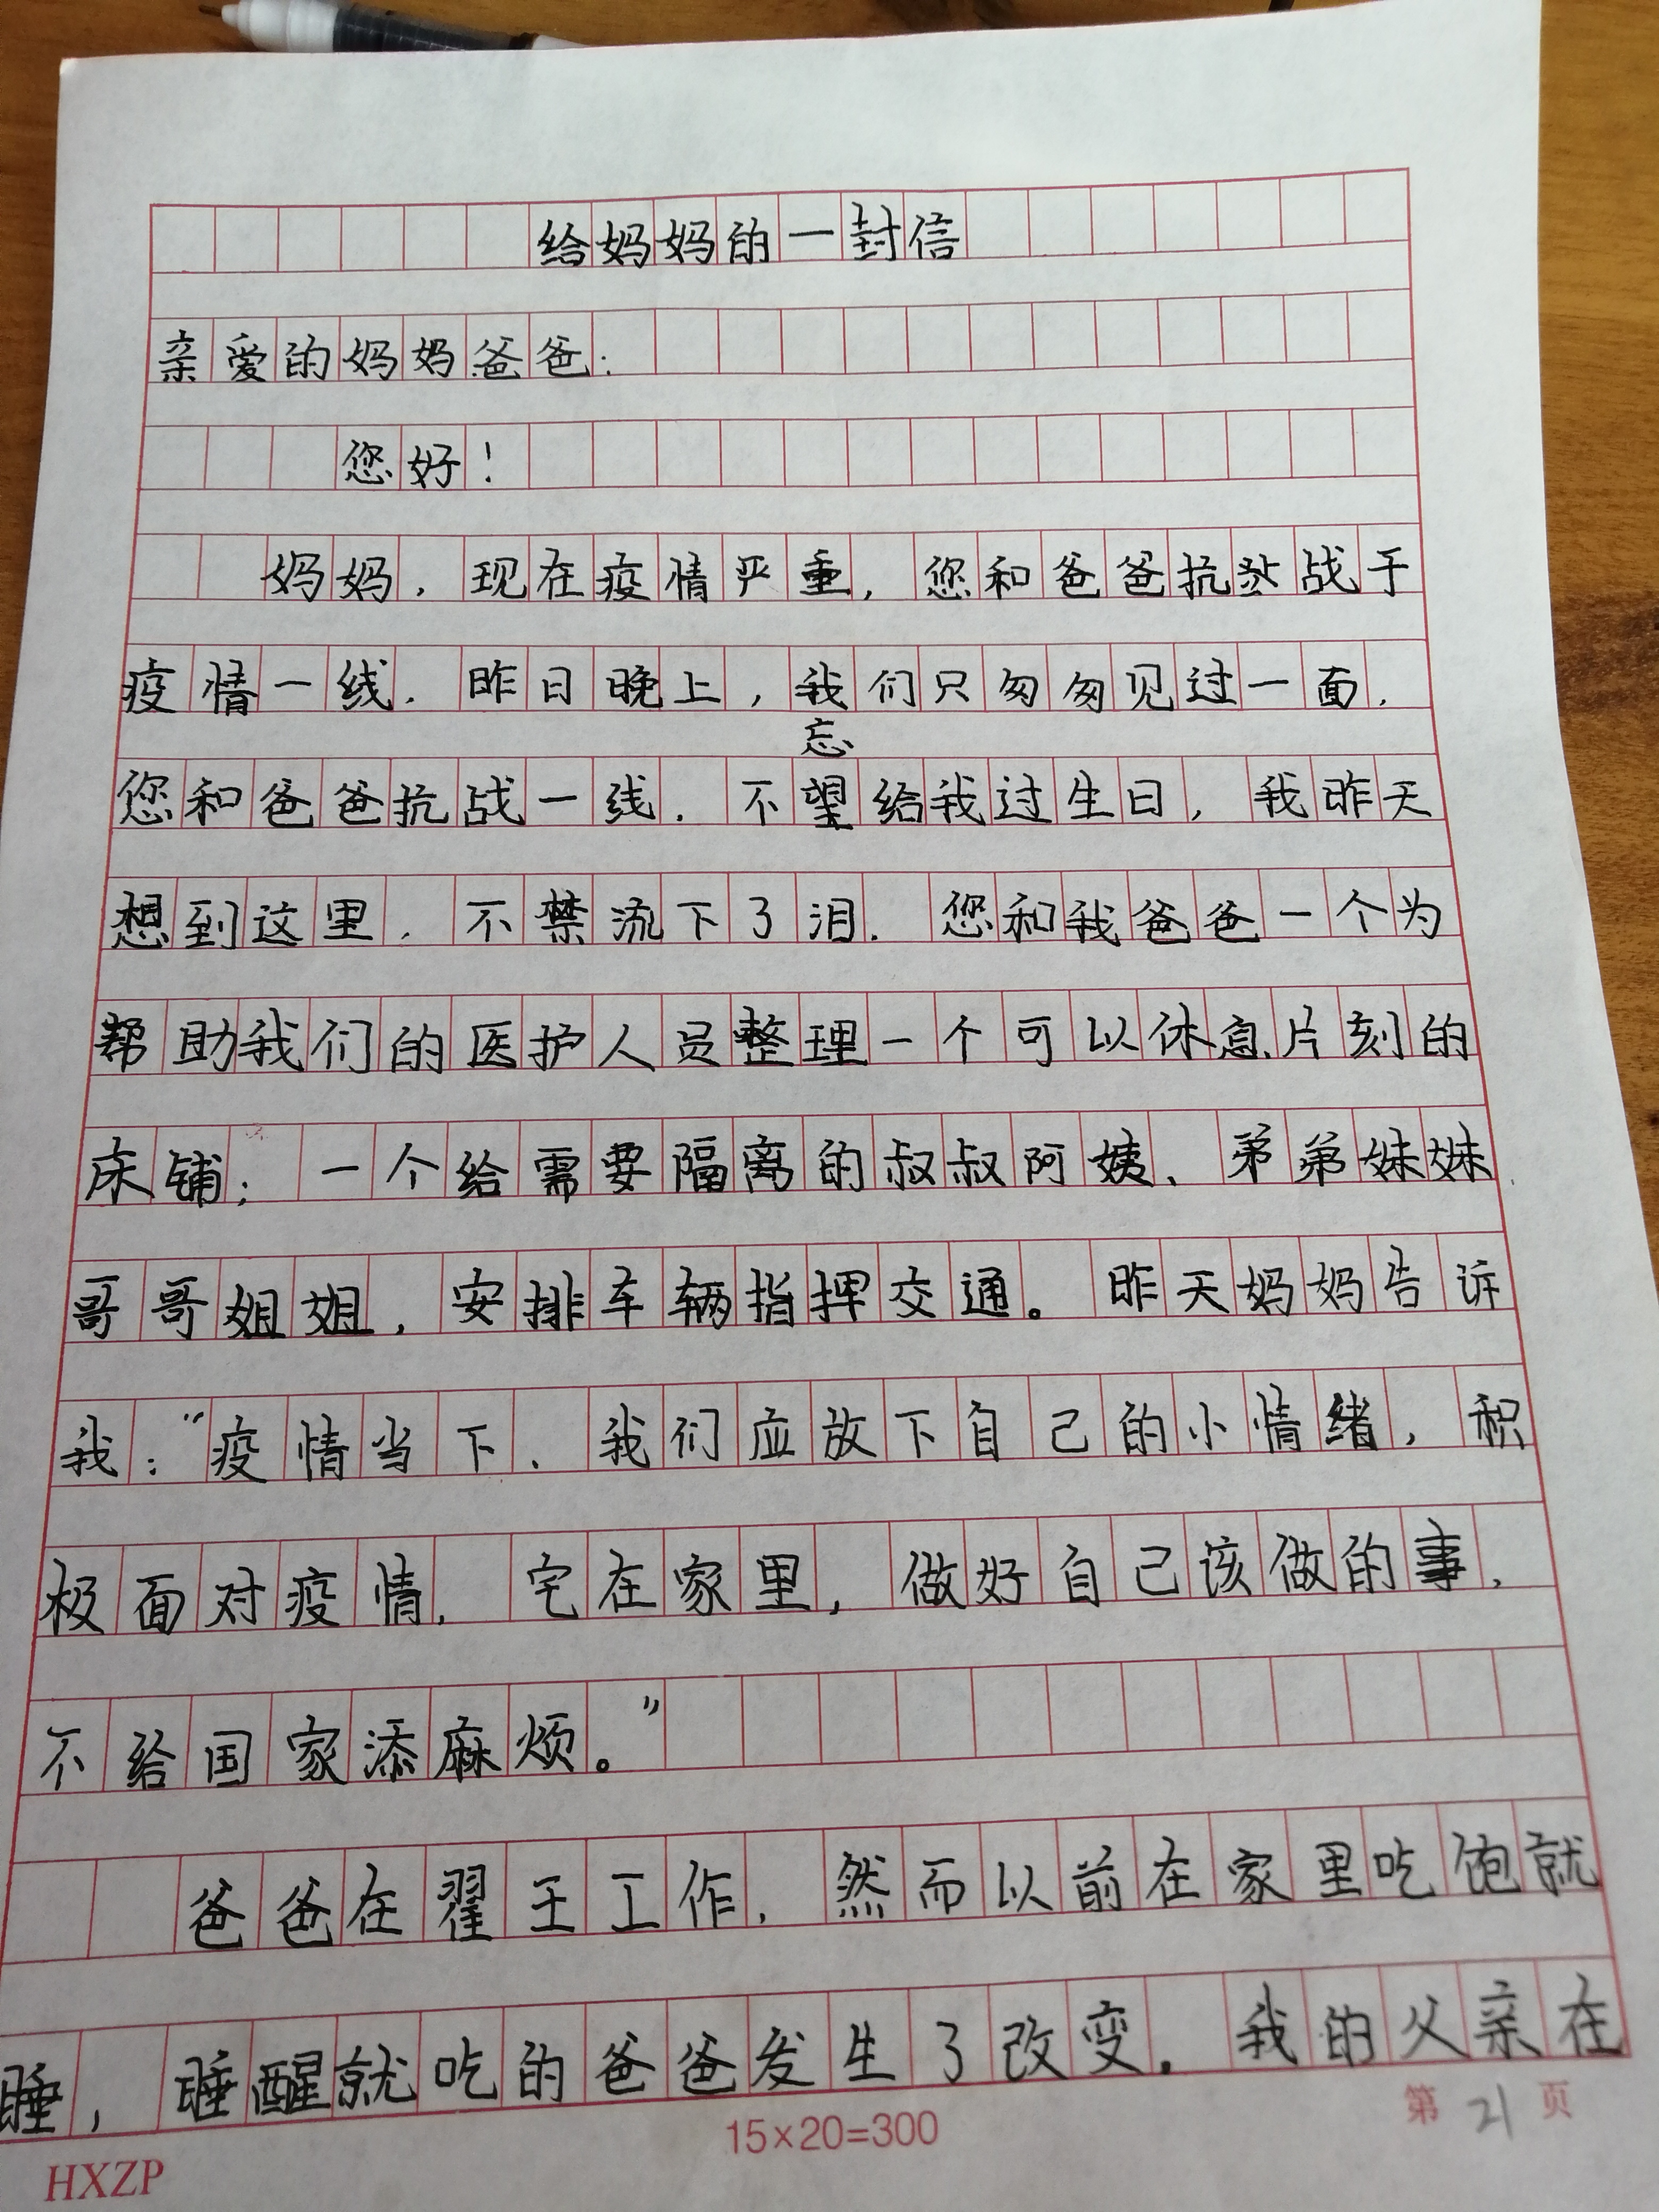 给妈妈的一封信
亲爱的妈妈爸爸：
您好！
妈妈，现在疫情严重，您和爸爸抗战于
疫情一线，昨日晚上，我们只匆匆见过一面，
忘
您和爸爸抗战一线，不望给我过生日，我昨天
想到这里，不禁流下了泪，您和我爸爸一个为
帮助我们的医护人员整理一个可以休息片刻的
床铺；一个给需要隔离的叔叔阿姨、弟弟妹妹、
哥哥姐姐，安排车辆指挥交通。昨天妈妈告诉
我：“疫情当下，我们应放下自己的小情绪，积
极面对疫情，宅在家里，做好自己该做的事，
不给国家添麻烦。”
爸爸在翟王工作，然而以前在家里吃饱就
睡，睡醒就吃的爸爸发生了改变。我的父亲在
15×20=300
第21页
HXZP